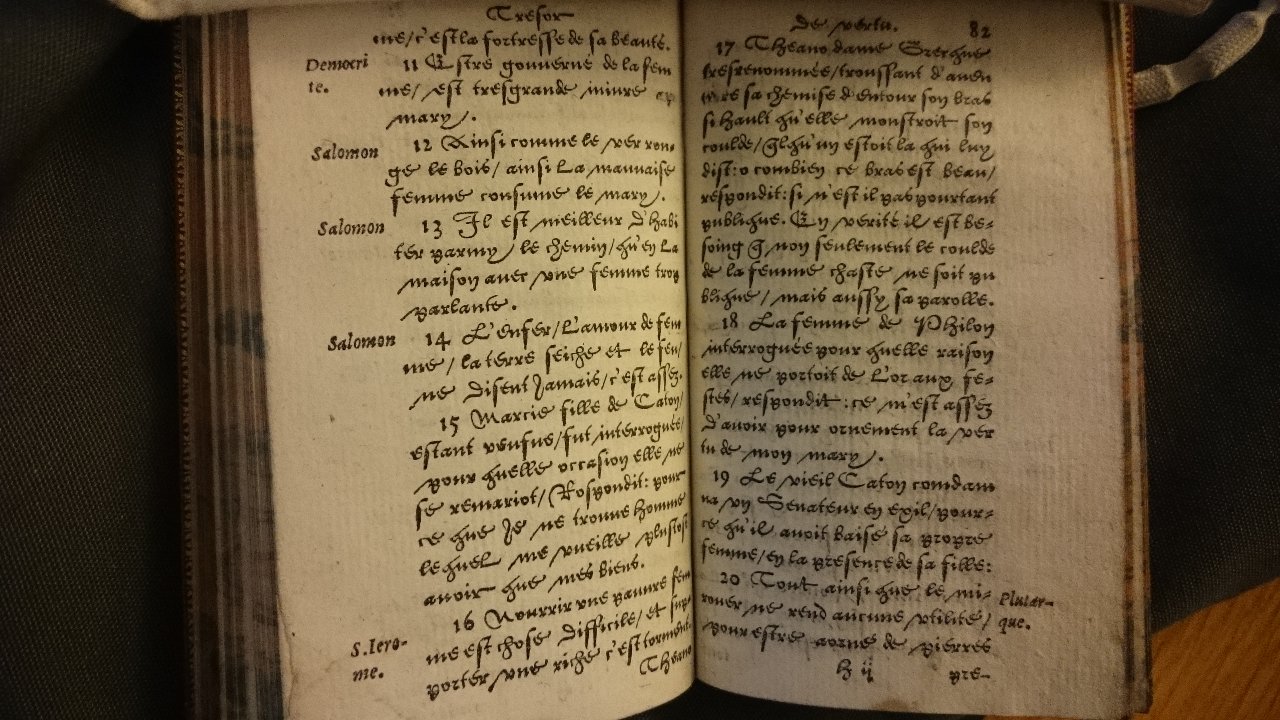 Tresor
me/c'est la fortresse de sa beauté.
Democri
te.
11 Estre gouverné de la fem
me/ est tresgrande iniure
mary.
Salomon
12 Ainsi comme le ver ron-
ge le bois/ ainsi la mauuaise
femme consume le mary.
Salomon
13 Il est meilleur d'habi
ter parmy le chemin/qu'en la
maison auec vne femme trop
parlante.
Salomon
14 L'enfer/L'amour de fem
me/ la terre seiche et le feu/
ne disent Jamais/c'est assez.
15 Marcie fille de Caton/
estant veufue/fut interroguée/
pour quelle occasion elle ne
se remariot/Respondit: pour
ce que Je ne trouue homme
lequel me vueille plustost
auoir que mes biens.
S.Iero-
me.
16 Nourrir vne pauure fem
me est chose difficile/et sup-
porter vne riche c'est torment.
Theano
De vertu. 82
17 Theano dame Grecque
tresrenommée/troussant d'auen
ture sa chemise d'entour son bras
si hault qu'elle monstroit son
coulde/q̃lqu'un estoit la qui luy
dist: o combien ce bras est beau/
respondit: si n'est il pas pourtant
publique. En verité il est be-
soing q̃ non seulement le coulde
de la femme chaste ne soit pu
blique/ mais aussy sa parolle.
18 La femme de Philon
interroguée pour quelle raison
elle ne portoit de L'or aux fe-
stes/respondit: ce m'est assez
d'auoir pour ornement la ver
tu de mon mary.
19 Le vieil Caton comdam
na vn Senateur en exil/pour-
ce qu'il auoit baisé sa propre
femme/en la presence de sa fille:
20 Tout ainsi que le mi-
rouer ne rend aucune vtilité/
pour estre aorné de pierres
Plutar-
que.
h ij pre-